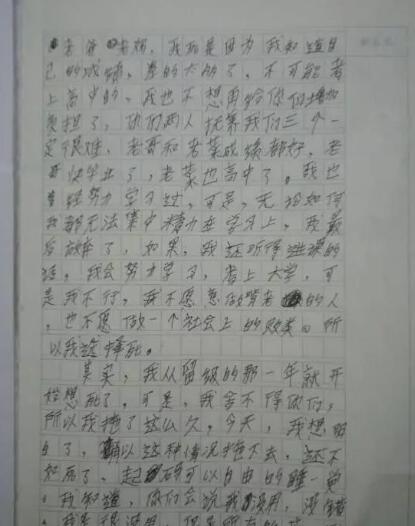 老爸老妈,我就是因为我知道自
己的成绩,差的太多了,不可能考
上高中的,我也不想再给你们增加
负担了,你们两人抚养我们三个一
定很难,老哥和老菜成绩都好,老
哥快毕业了,老菜也高中了。我也
曾经努力学习过,可是,无论如何
我都无法集中精力在学习上,我最
后放弃了,如果,我还听得进课的
话,我会努力学习,考上大学,可
是我不行,我不愿意做背着的人
,也不愿做一个社会上的败类。所
以我选择死。
其实,我从留级的那一年就开
始想死了,可是,我舍不得你们,
所以我拖了这么久,今天,我想明
白了,以这种情况拖下去,还不
如死了,起码可以自由的睡一觉
。我知道,你们会说我没用,没错